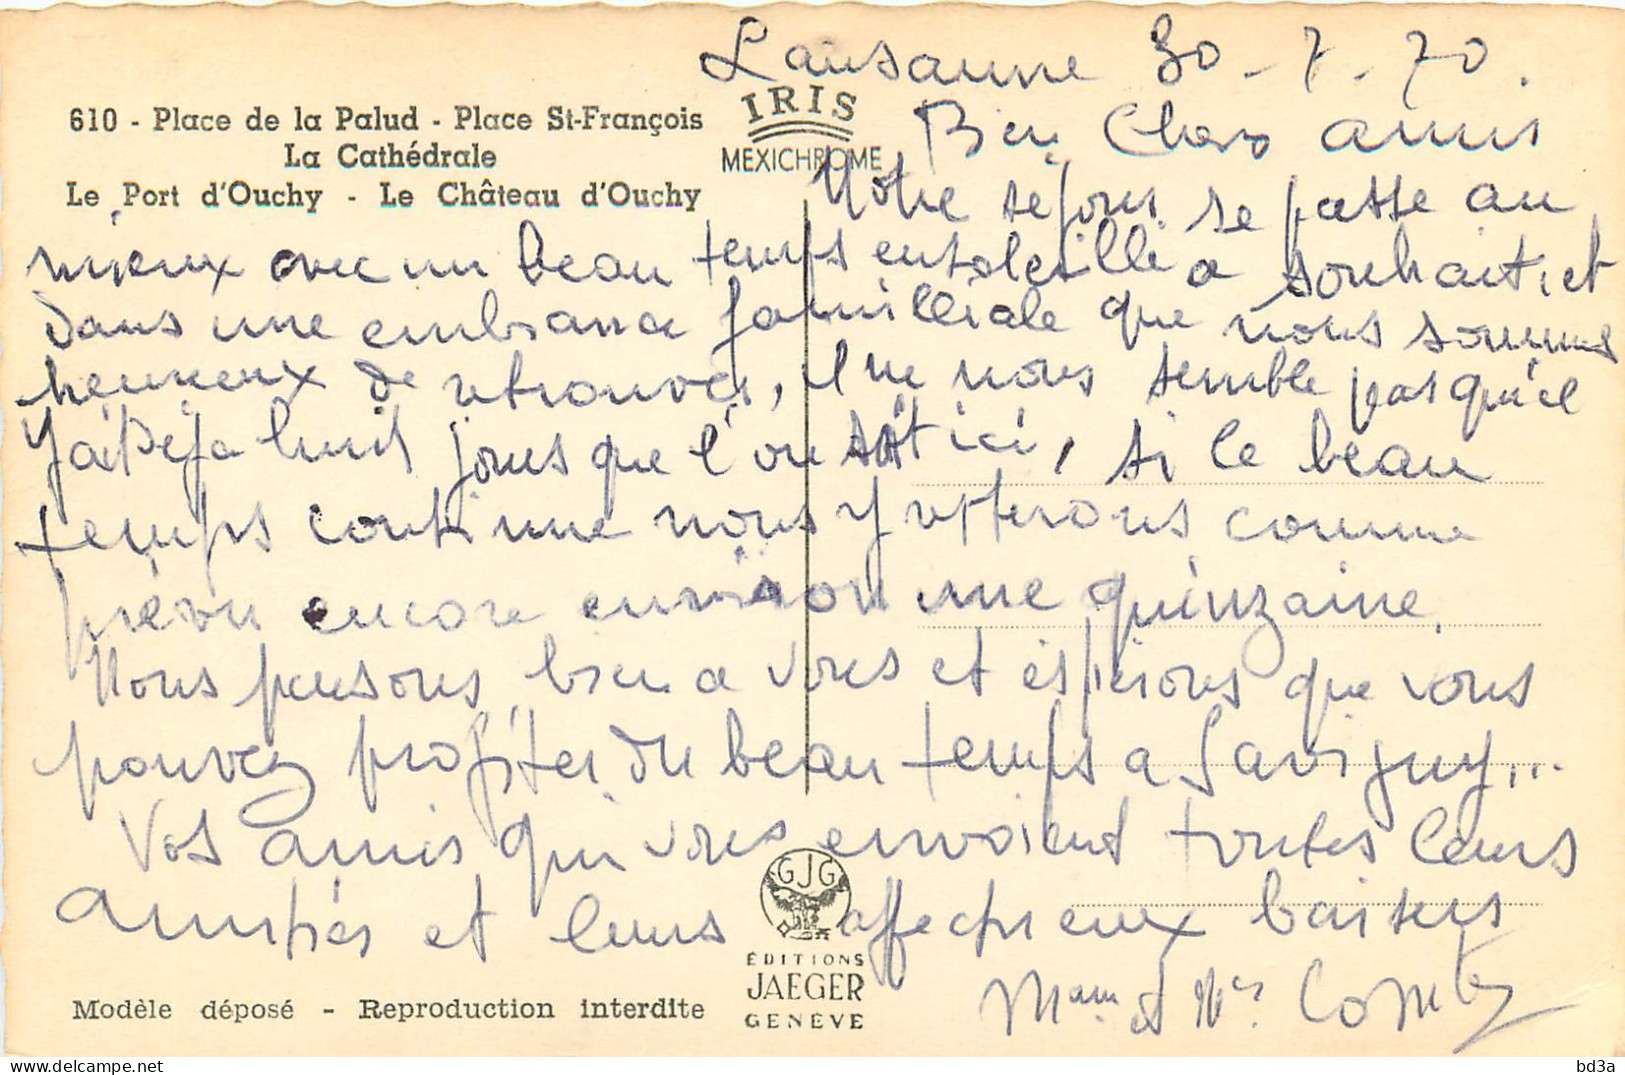 Lausanne 30-7-70.
610 - Place de la Palud - Place St-François
La Cathédrale
Le Port d'Ouchy - Le Château d'Ouchy
IRIS
MEXICHROME
Bien Chers amis
Notre séjour se passe au
mieux avec un beau temps ensoleillé a souhait, et
dans une ambiance familliale que nous sommes
heureux de retrouver, il ne nous semble pas qu'il
y ai Déja huit jours que l'on soit ici, si le beau
temps continue nous y resterons comme
prévu encore environ une quinzaine.
Nous pensons bien a vous et espérons que vous
pouvez profiter du beau temps a Savigny...
Vos amis qui vous envoient toutes leurs
amitiés et leurs affectueux baisers
Mr et Me
GJG
ÉDITIONS
JAEGER
GENÈVE
Modèle déposé - Reproduction interdite
bd3a